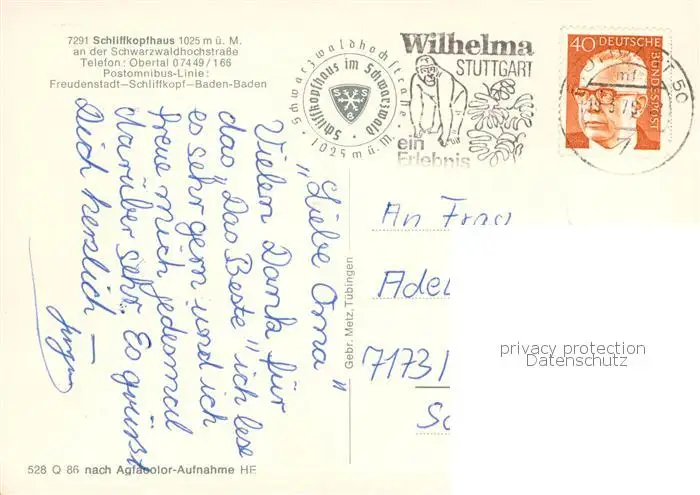 7291 Schliffkopfhaus 1025 m ü. M.
an der Schwarzwaldhochstraße
Telefon: Obertal 07449/166
Postomnibus-Linie:
Freudenstadt—Schliffkopf—Baden-Baden
Schwarzwaldhochstraße
Schliffkopfhaus im Schwarzwald
1025 m ü. M.
S S
8
Wilhelma
STUTTGART
ein
Erlebnis
40 DEUTSCHE
BUNDESPOST
50
"Liebe Oma"
Vielen Dank für
das „Das Beste" ich lese
es sehr gern und ich
freue mich jedesmal
darüber sehr. Es grüßt
Dich herzlich —
Jürgen
Gebr. Metz, Tübingen
An Frau
Adel
7173/
Sc
privacy protection
Datenschutz
528 Q 86 nach Agfacolor-Aufnahme HE